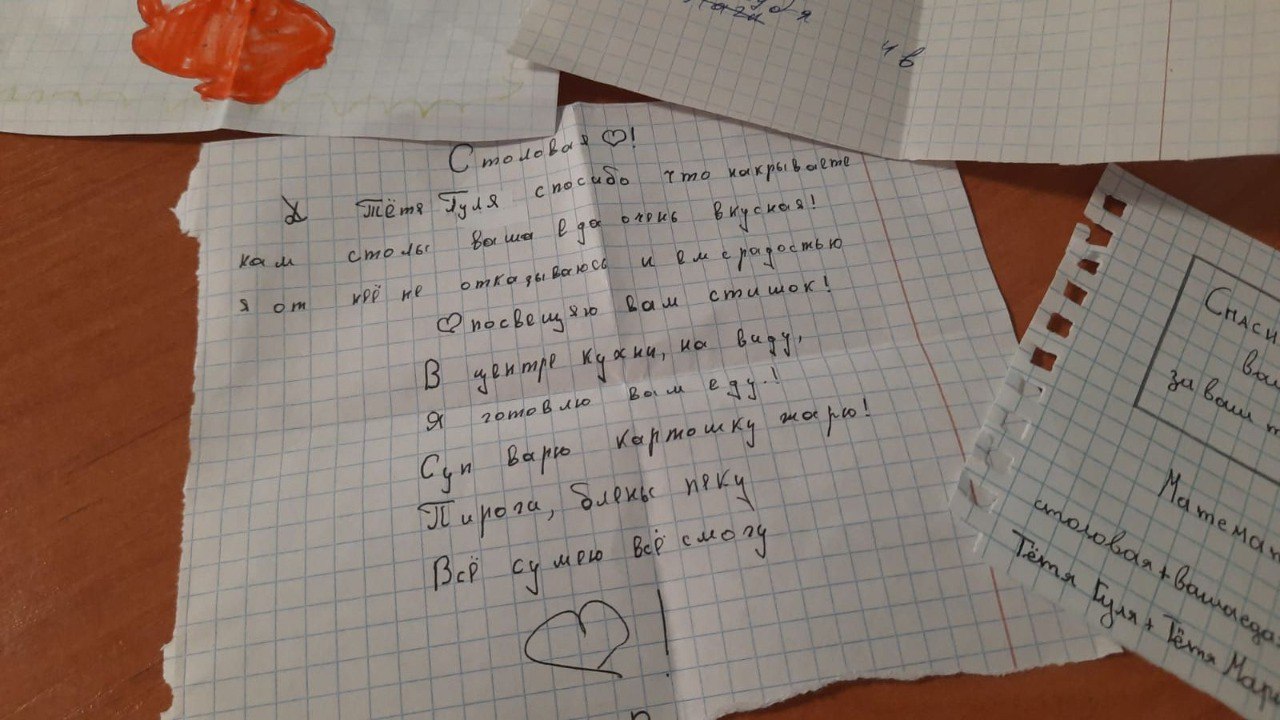 4 в
Столовая ♡!
Тётя Гуля спосибо что накрываете
нам столы ваша еда очень вкусная!
я от неё не отказываюсь и ем срадостью
♡посвещяю вам стишок!
В центре кухни, на виду,
Я готовлю вам еду.!
Суп варю картошку жарю!
Пирога, блены пеку
Всё сумею всё смогу
♡!
за ваш
столовая+вашаеда
Тётя Гуля+Тётя